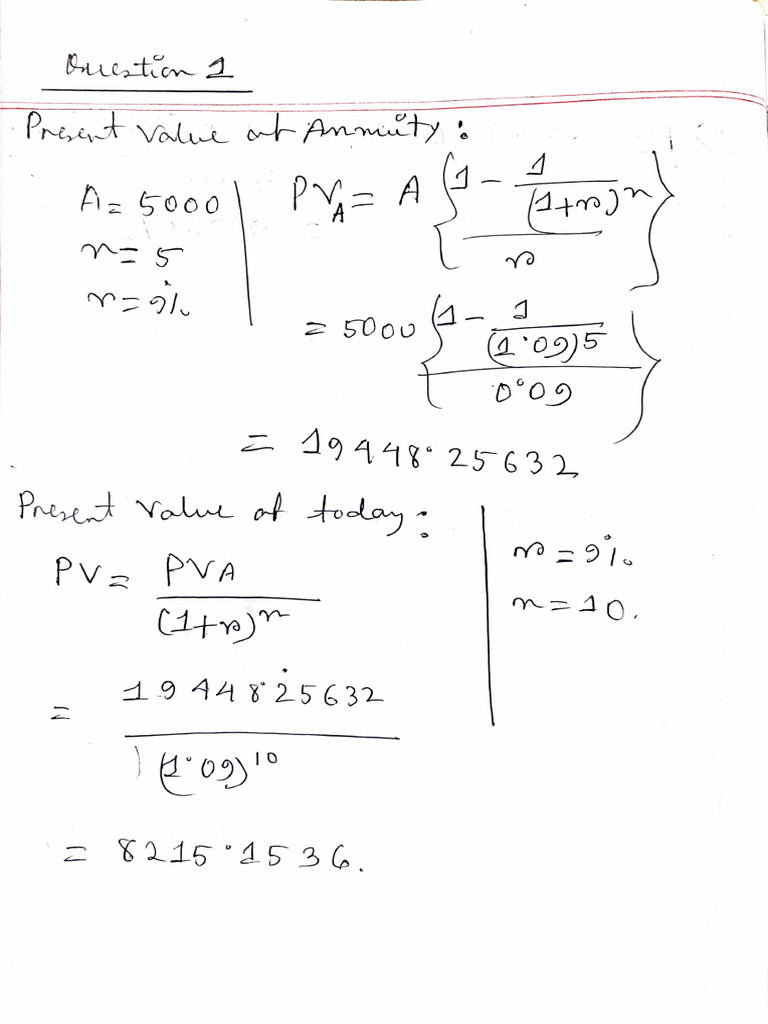 Question 1
Present Value at Annuity :
A = 5000
n = 5
r = 9%
PV_A = A { (1 - 1/(1+r)^n) / r }
= 5000 { (1 - 1/(1.09)^5) / 0.09 }
= 19448.25632
Present Value of today :
PV = PVA / (1+r)^n
r = 9%
n = 10.
= 19448.25632 / (1.09)^10
= 8215.1536.